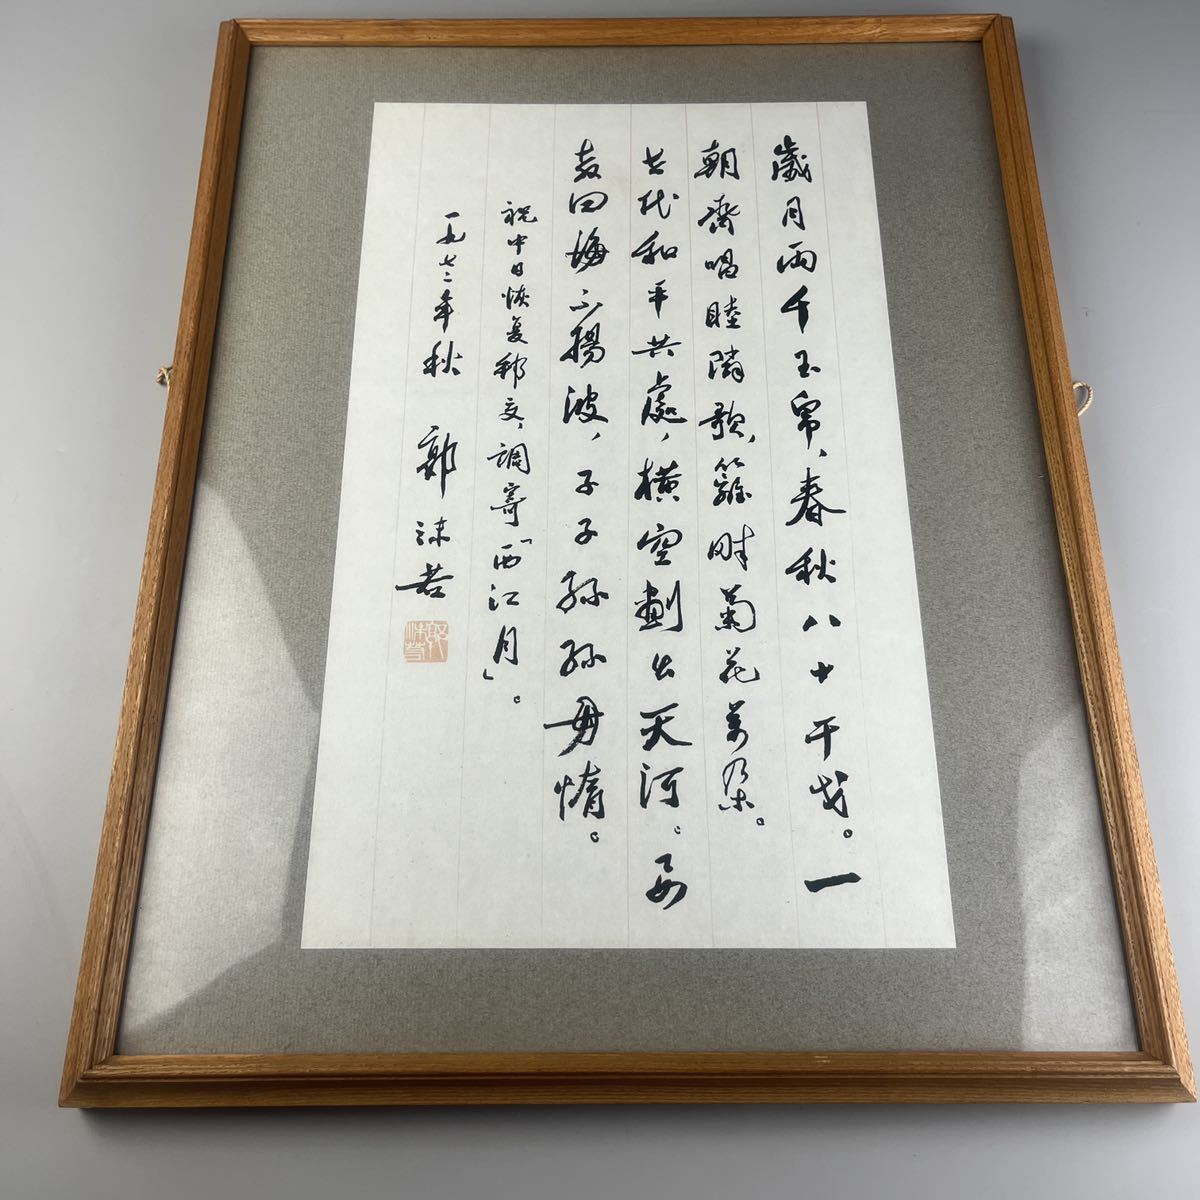 歲月兩千玉帛、春秋八十干戈。一
朝齊唱睦隣歌、籬畔菊花萬朵。
世代和平共處，橫空劃出天河。要
教四海不揚波，子子孫孫毋惰。
祝中日恢复邦交，調寄「西江月」。
一九七二年秋　郭沫若
郭沫若